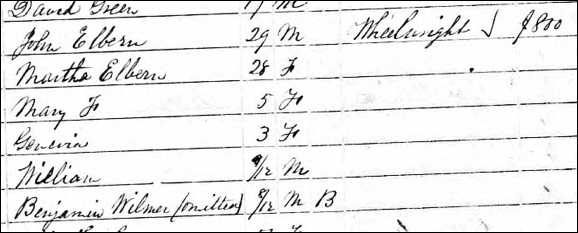 David Green 17 M
John Elbern 29 M Wheelwright $800
Martha Elbern 28 F
Mary F 5 F
Genevia 3 F
William 9/12 M
Benjamin Wilmer (omitted) 9/12 M B